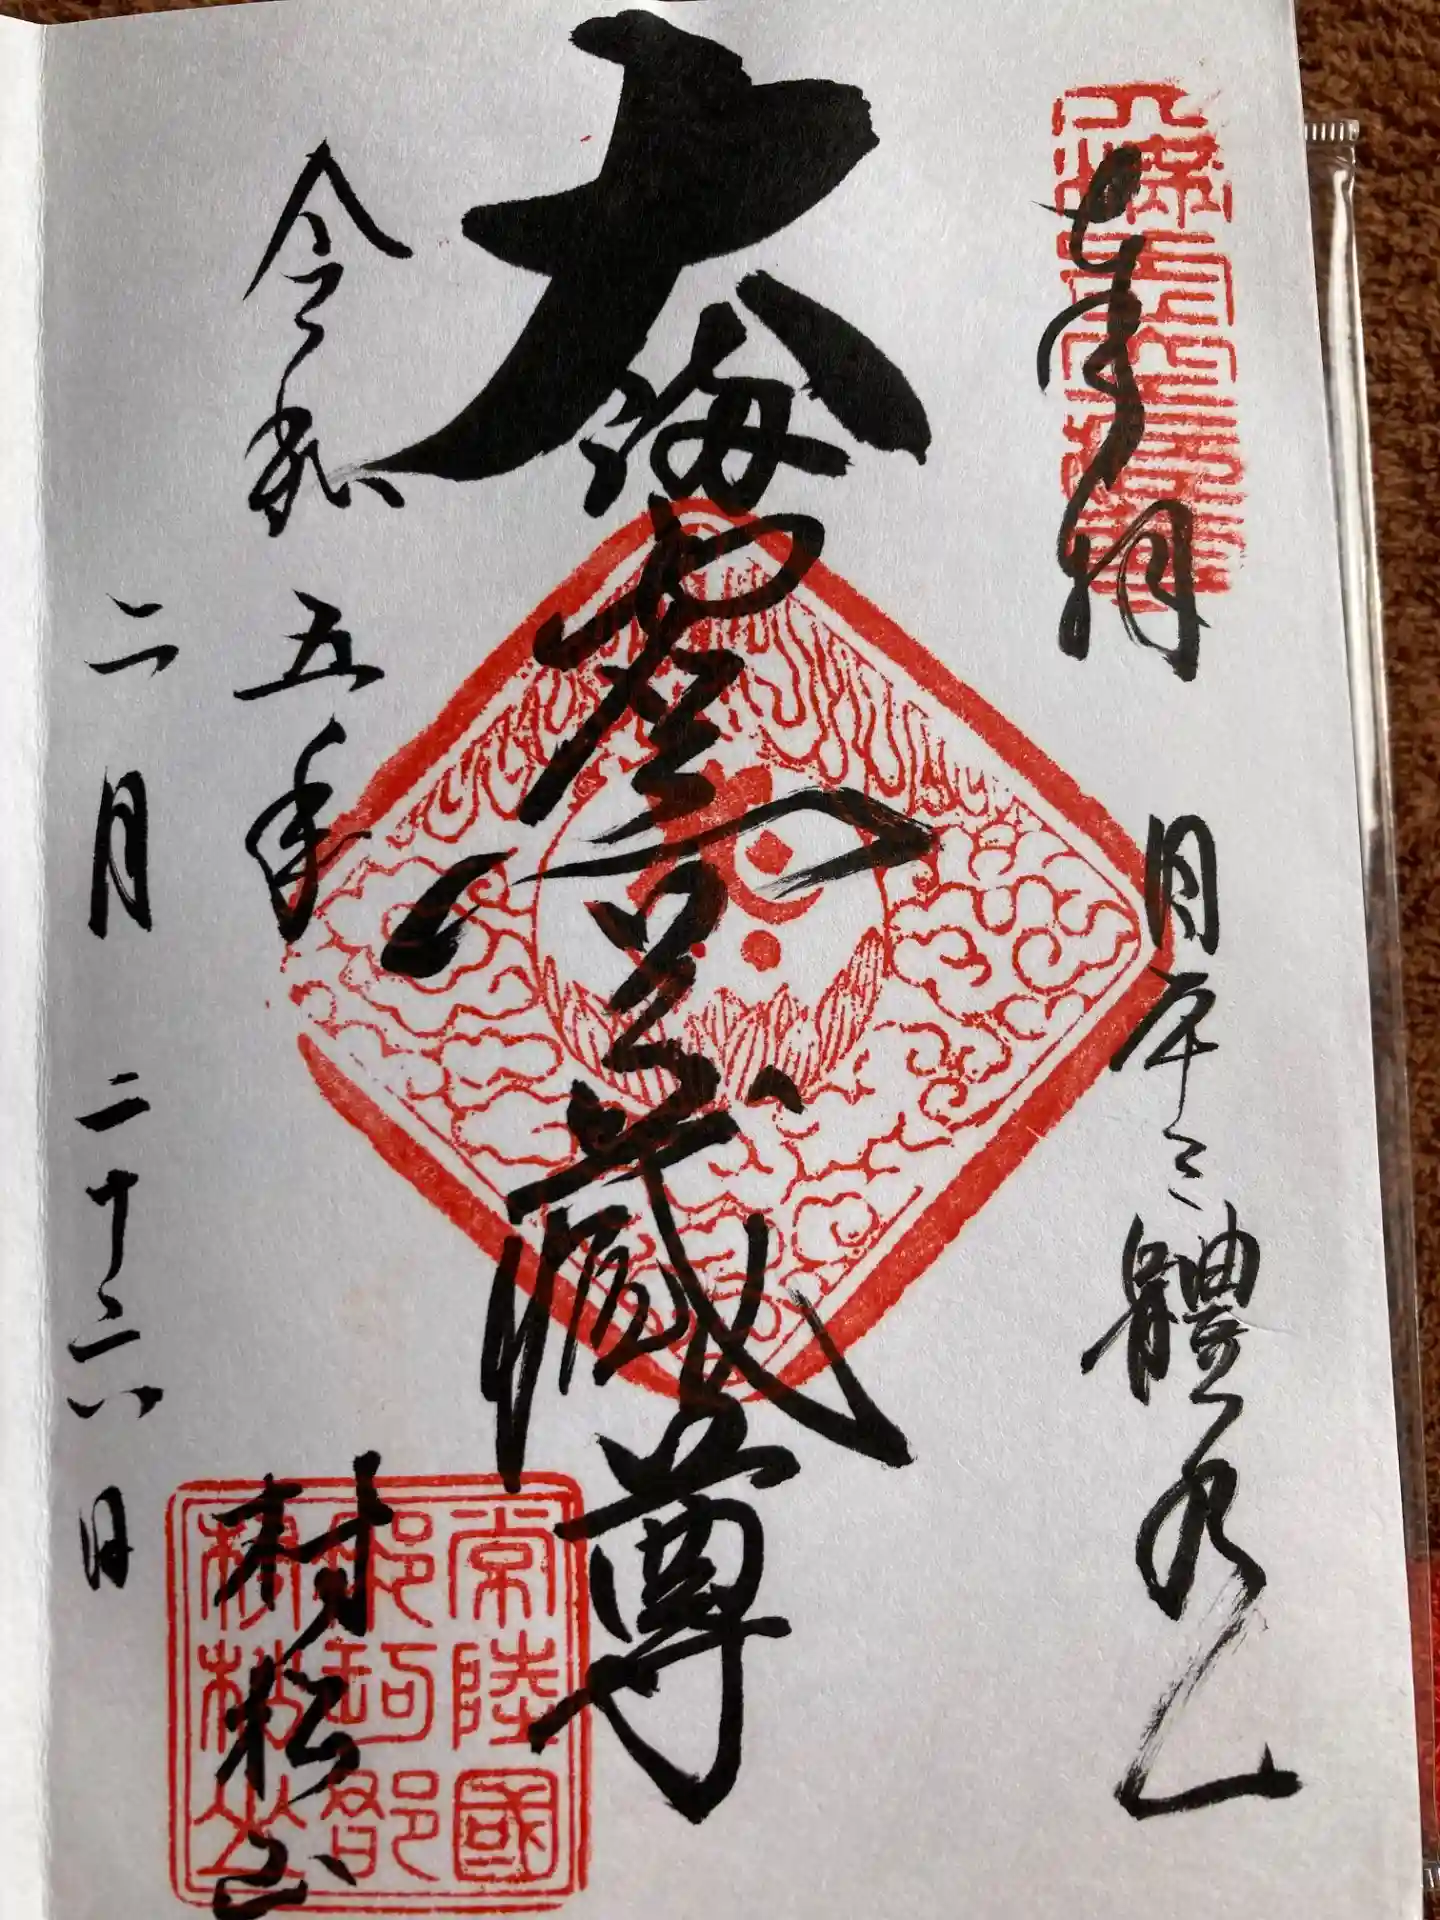 奉拝
日本三體
大満虚空蔵尊
令和五年
二月二十六日
村松山
常陸國
那珂郡
村松山